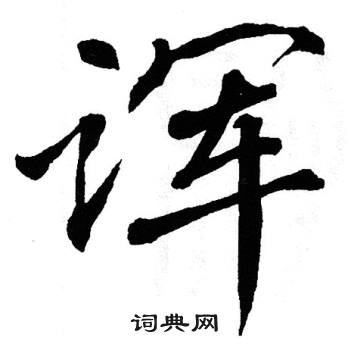 诨
词典网